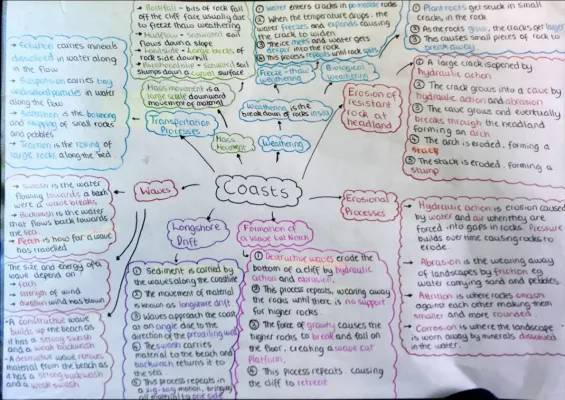 → Rockfall - bits of rock fall
off the cliff face usually due
to freeze thaw weathering
→ Mudflow - saturated soil
flows down a slope
→ Landslide - large blocks of
rock slide downhill
→ Rotational slip - saturated soil
slumps down a curved surface
① Water enters cracks in
rocks
② When the temperature drops, the
water freezes and expands causing
the crack to widen
③ The ice melts and water gets
deeper into the rock
④ This process repeats until rock
① Plant roots get stuck in small
cracks in the rock
② As the roots grow, the cracks get larger
③ This causes small pieces of rock to
break away
→ Solution carries minerals
dissolved in water along
in the flow
→ Suspension carries tiny
particles in water
along the flow
→ Saltation is the bouncing
and hopping of small rocks
and pebbles
→ Traction is the rolling of
large rocks along the bed
Mass movement is a
large scale downward
movement of material
Freeze-thaw
weathering
Biological
weathering
Weathering is the
breakdown of rocks insitu
Transportation
Processes
Mass
Movement
Weathering
Erosion of
resistant
rock at
headland
① A large crack is opened by
hydraulic action
② The crack grows into a cave by
hydraulic action and abrasion
③ The cave grows and eventually
breaks through the headland
forming an arch
④ The arch is eroded, forming a
stack
⑤ The stack is eroded, forming a
stump
Coasts
Waves
→ Swash is the water
flowing towards a beach
were a wave breaks
→ Backwash is the water
that flows back towards
the sea
→ Fetch is how far a wave
has travelled
The size and energy of a
wave depend on
→ fetch
→ strength of wind
→ duration wind has blown
- A constructive wave
builds up the beach as
it has a strong swash
and a weak backwash
- A destructive wave removes
material from the beach as
it has a strong backwash
and a weak swash
Longshore
Drift
① Sediment is carried by
the waves along the coastline
② The movement of material
is known as longshore drift
③ Waves approach the coast
at an angle due to the
direction of the prevailing wind
④ The swash carries
material to the beach and
backwash returns it to
the sea
⑤ This process repeats in
a zig-zag motion, bringing
all material to one side
Formation of
a Wave Cut Notch
① Destructive waves erode the
bottom of a cliff by hydraulic
action and abrasion
② This process repeats, wearing away
the rocks until there is no support
for higher rocks
③ The force of gravity causes the
higher rocks to break and fall on
the floor, creating a wave cut
platform
④ This process repeats, causing
the cliff to retreat
Erosional
Processes
→ Hydraulic action is erosion caused
by water and air when they are
forced into gaps in rocks. Pressure
builds over time causing rocks to
erode
→ Abrasion is the wearing away
of landscapes by friction eg
water carrying sand and pebbles
→ Attrition is where rocks smash
against each other making them
smaller and more rounded
→ Corrosion is where the landscape
is worn away by minerals dissolved
in the water.